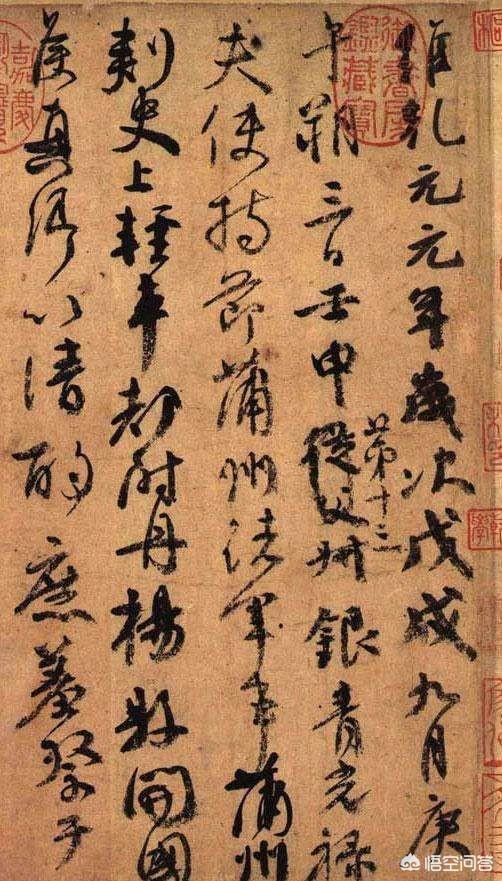 維乾元元年歲次戊戌九月庚
午朔三日壬申從父叔銀青光祿
第十三
夫使持節蒲州諸軍事蒲州
刺史上輕車都尉丹楊縣開國
侯真卿以清酌庶羞祭于
御書房鑑藏寶
嘉慶
悟空问答